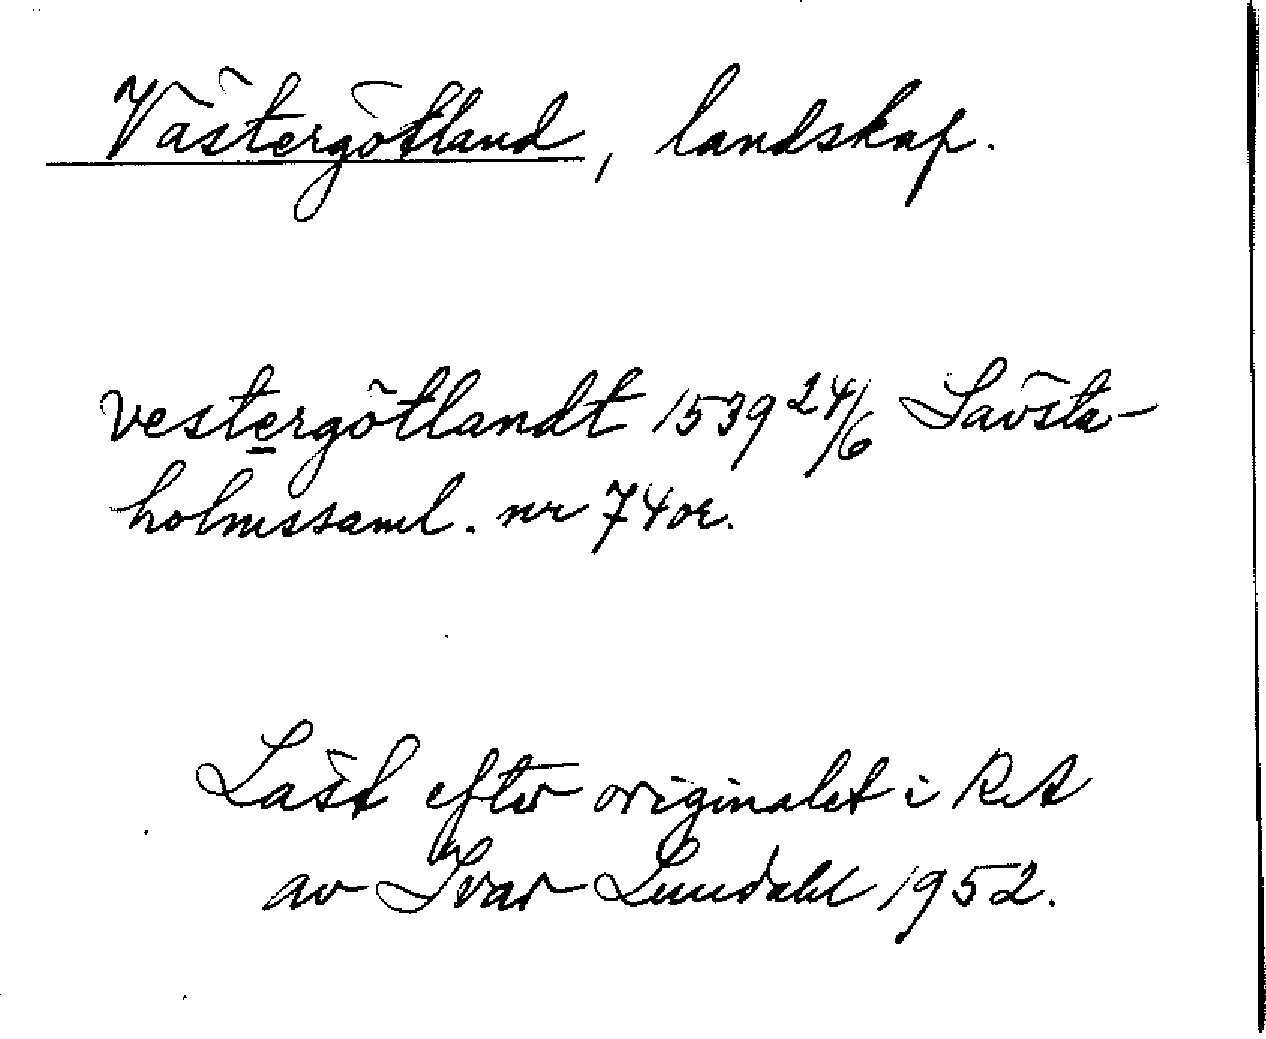 Västergötland, landskap.
vestergötlandt 1539 24/6 Sävsta-
holmssaml. nr 74 or.
Läst efter originalet i RA
av Ivar Lundahl 1952.